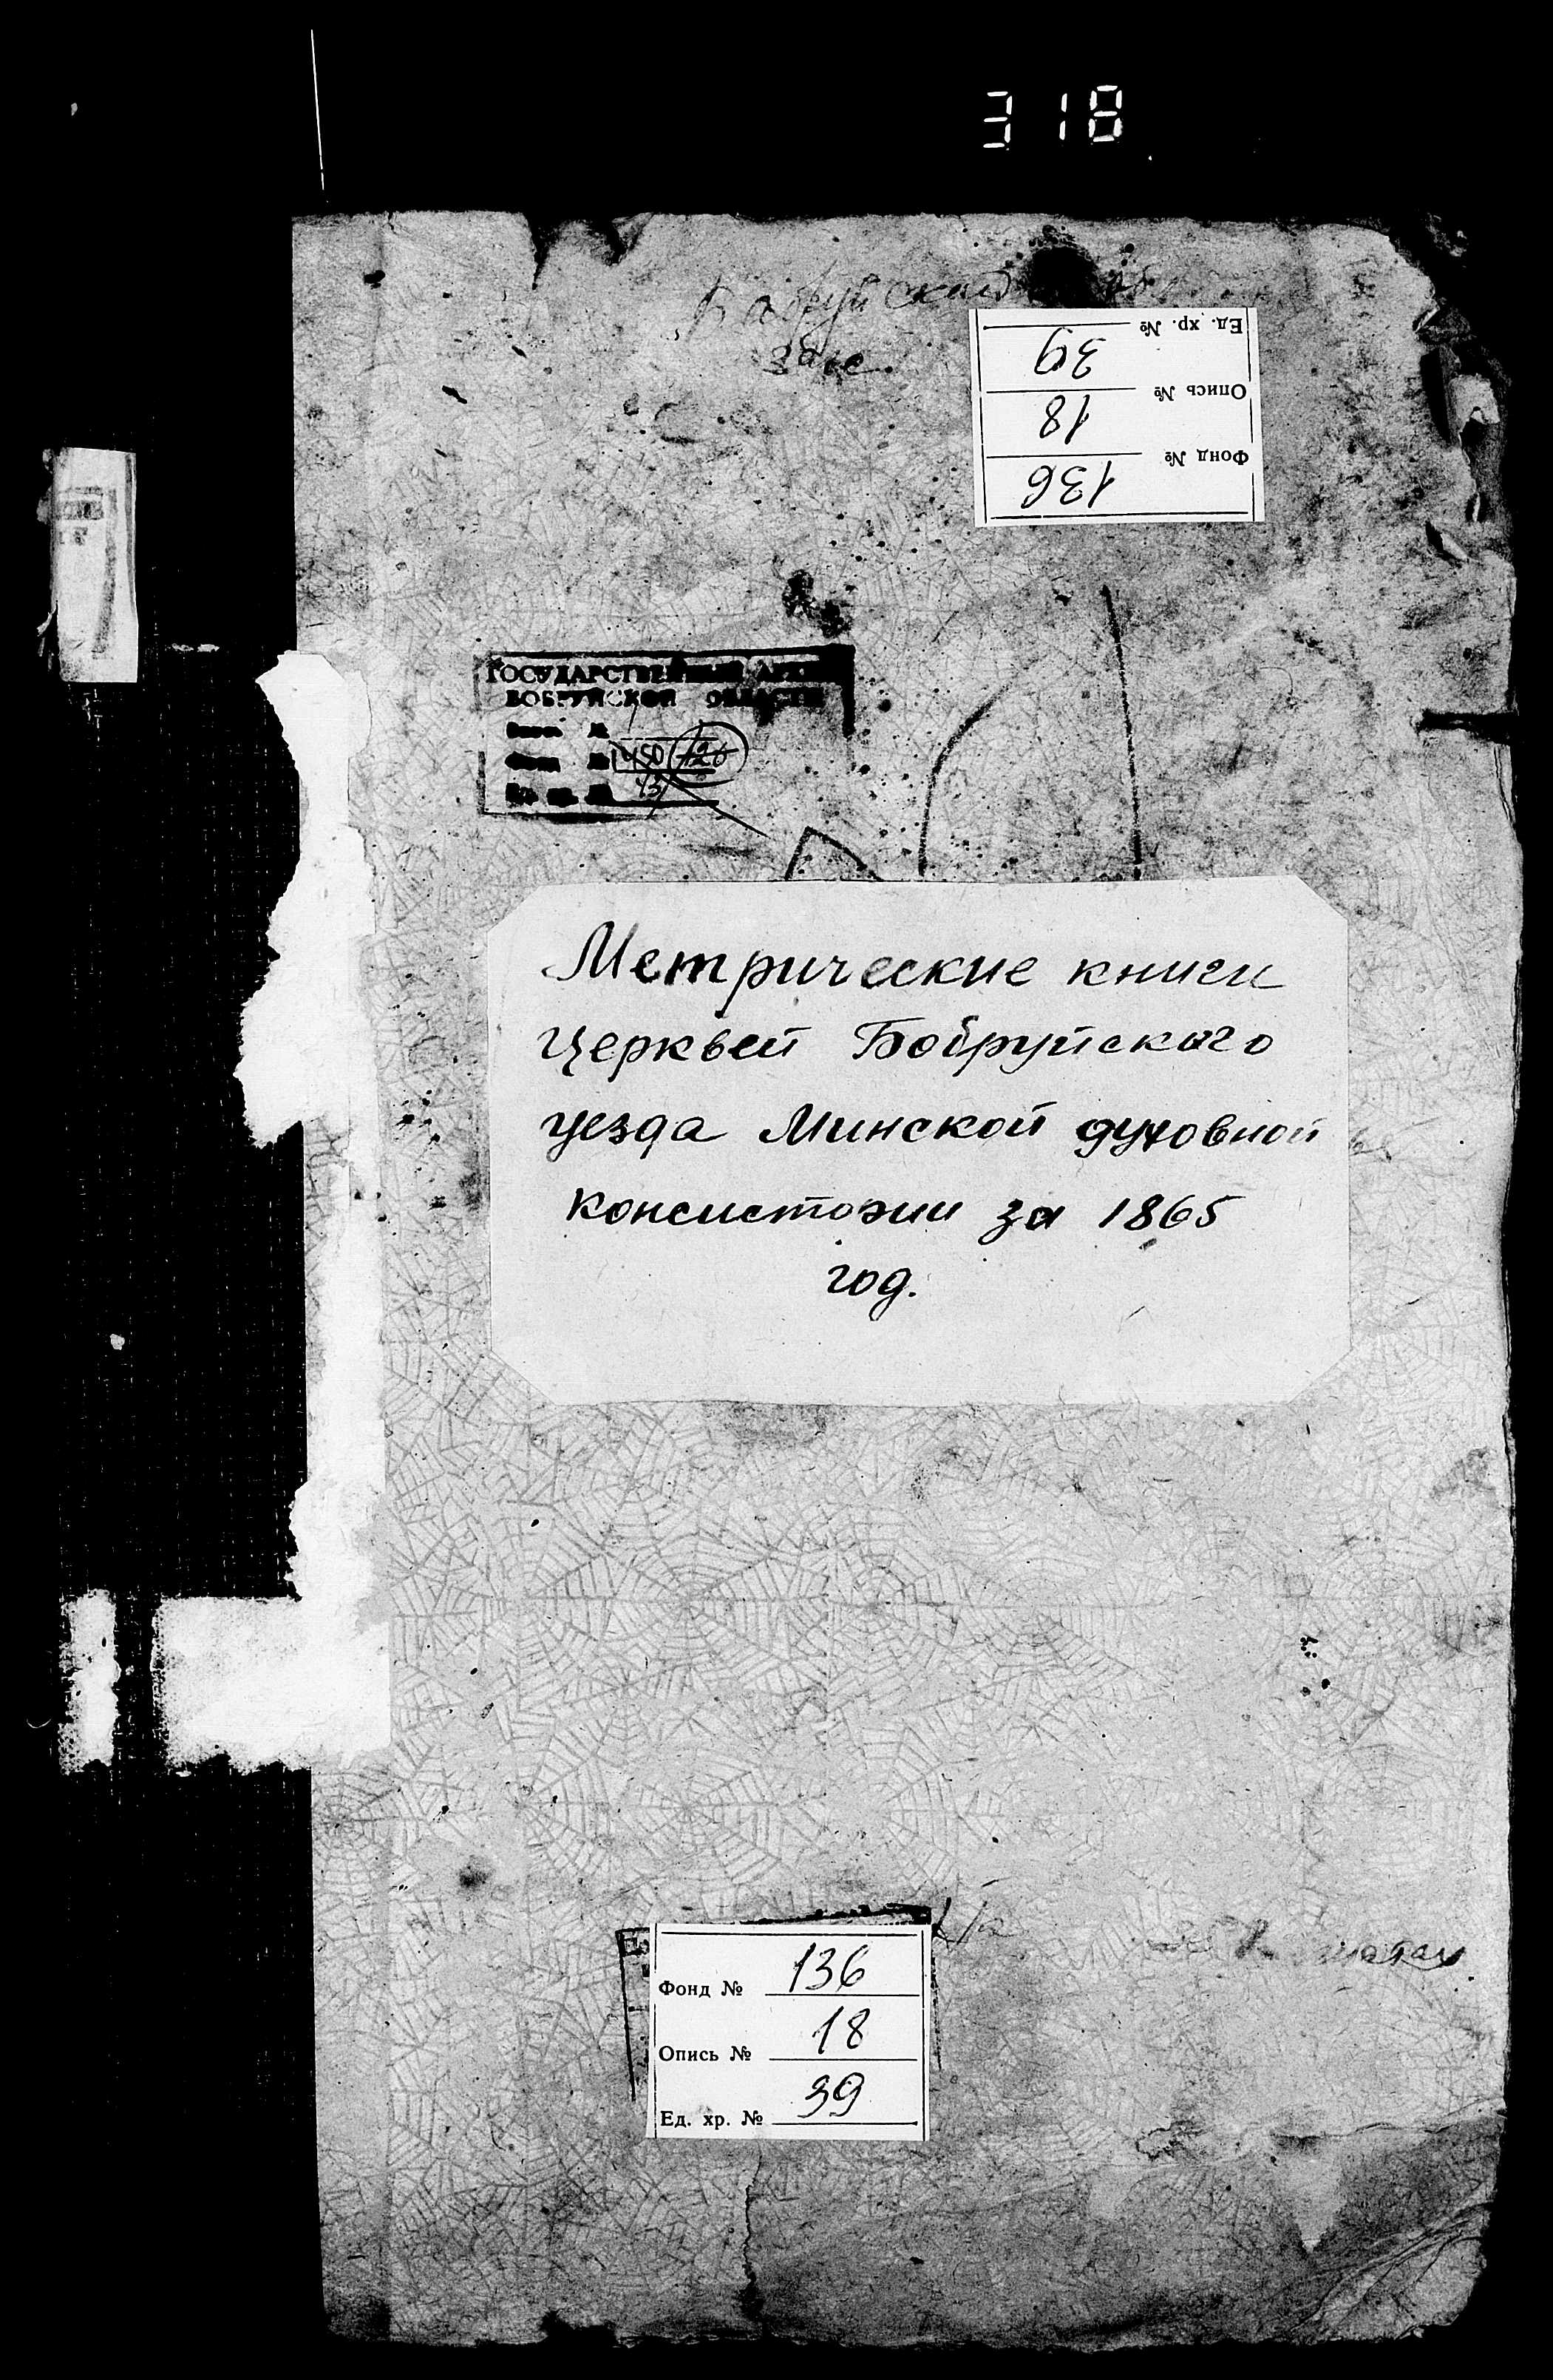 318
Ед. хр. № 39
Опись № 18
Фонд № 136
ГОСУДАРСТВЕННЫЙ АРХИВ
БОБРУЙСКОЙ ОБЛАСТИ
Метрические книги
церквей Бобруйского
уезда Минской духовной
консистории за 1865
год.
Фонд № 136
Опись № 18
Ед. хр. № 39